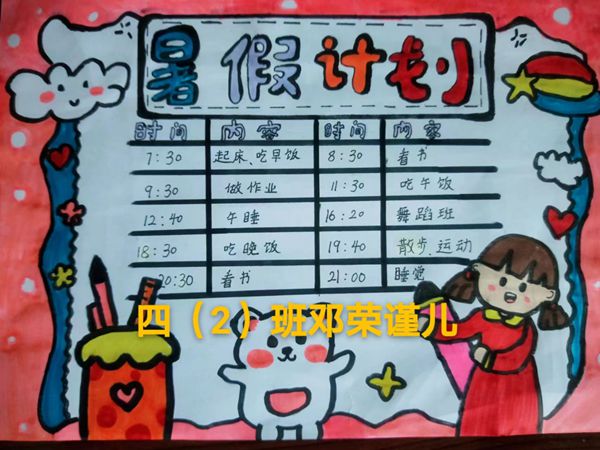 暑假计划
时间 内容 时间 内容
7:30 起床、吃早饭 8:30 看书
9:30 做作业 11:30 吃午饭
12:40 午睡 16:20 舞蹈班
18:30 吃晚饭 19:40 散步、运动
20:30 看书 21:00 睡觉
四（2）班邓荣谨儿